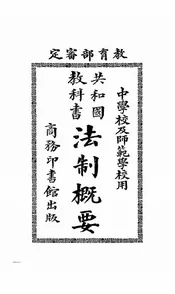 教育部審定
中學校及師範學校用
共和國
教科書
法制概要
商務印書館出版